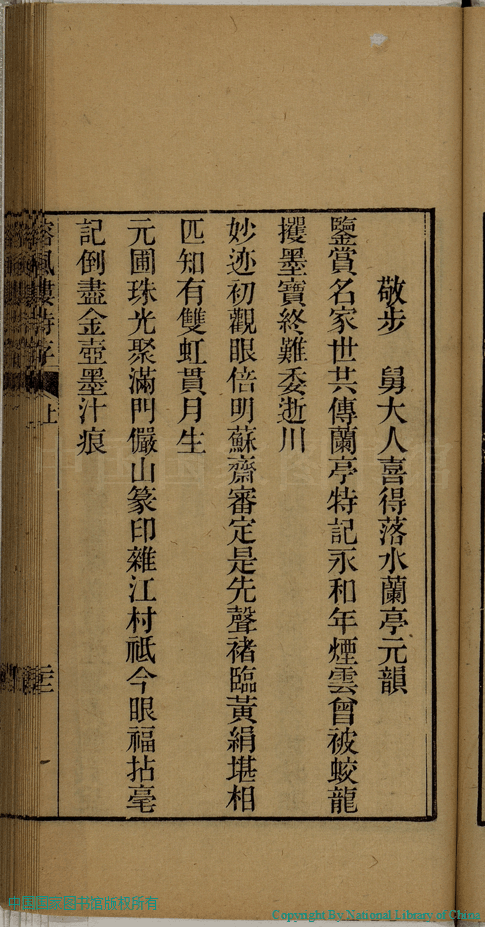 敬步　舅大人喜得落水蘭亭元韻
鑒賞名家世共傳蘭亭特記永和年煙雲曾被蛟龍
攫墨寶終難委逝川
妙迹初觀眼倍明蘇齋審定是先聲褚臨黃絹堪相
匹知有雙虹貫月生
元圃珠光聚滿門儼山篆印雜江村祗今眼福拈毫
記倒盡金壺墨汁痕
風樓詩存
上
中国国家图书馆版权所有
Copyright By National Library of China